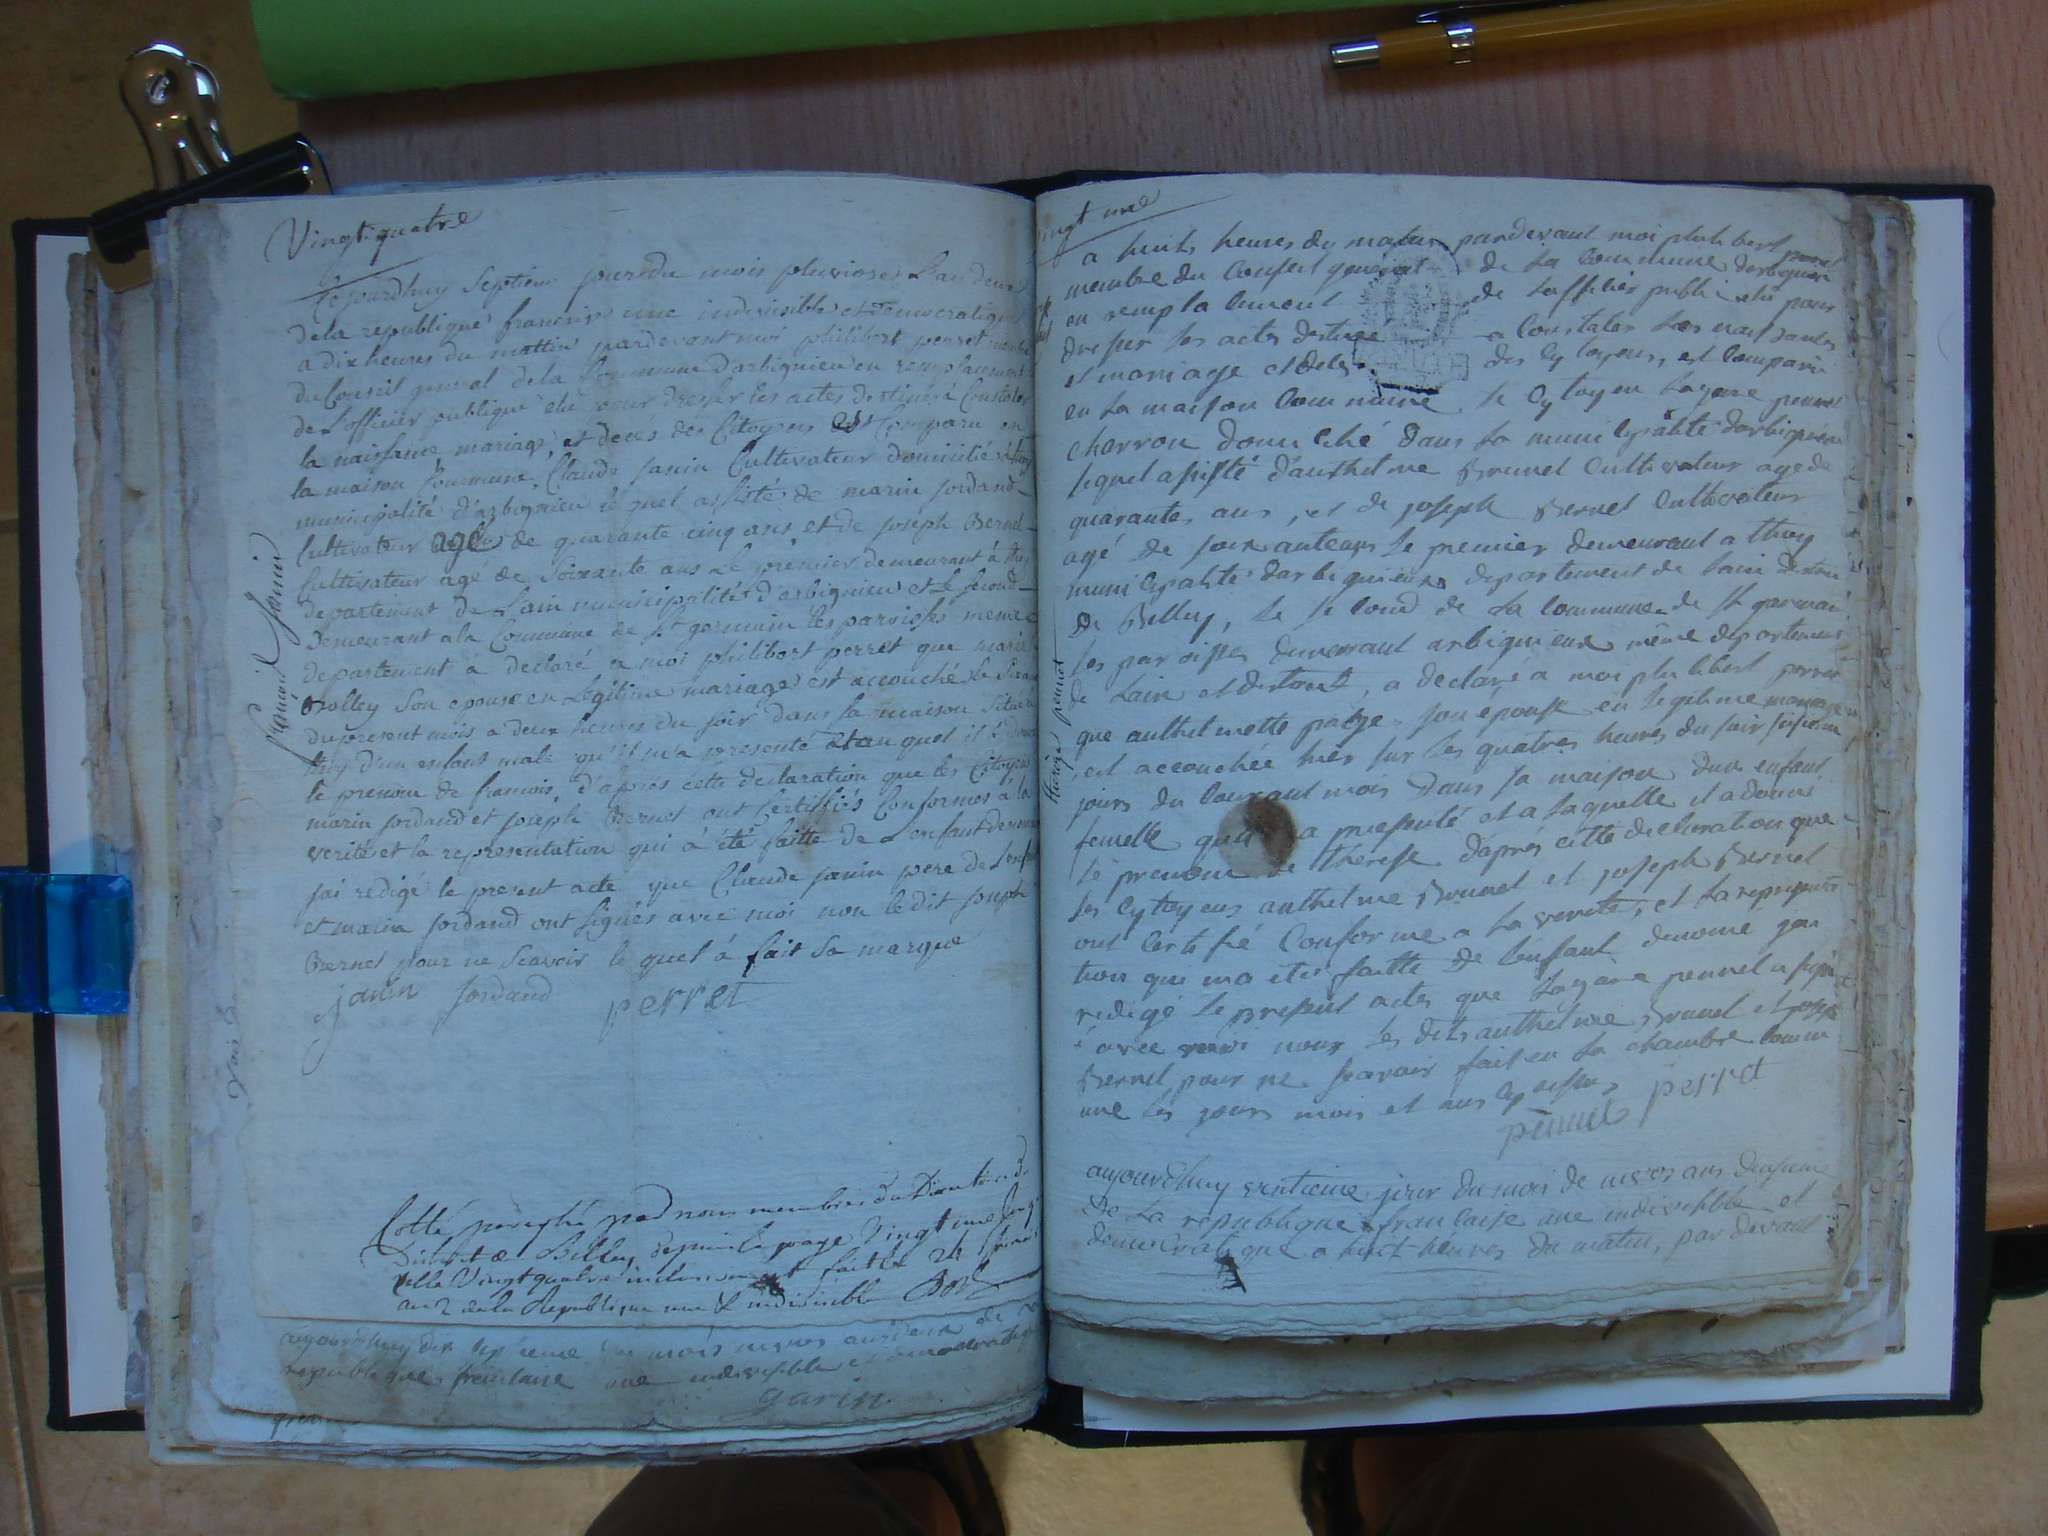 Vingt quatre
Cejourdhuy Septieme jour du mois pluviose L'an deux
de la republique francoise une indivisible et democratique
a dix heures du mattin pardevant moi philibert perret membre
du Conseil general de la Commune d'arbignieu en remplacement
de L'officier publique elu pour dresser les actes destinés à Constater
la naissance, mariage, et deces des Citoyens Est Comparu en
la maison Commune, Claude janin Cultivateur domicilié à thoy
municipalité d'arbignieu le quel assisté de marin jordand
Cultivateur agé de quarante cinq ans et de joseph Bernel
Cultivateur agé de Soixante ans Le premier demeurant à thoy
departement de L'ain municipalité d'arbignieu et le second
Demeurant a la Commune de St germain les paroisses meme
departement à declaré a moi philibert perret que marie
Rolley Son epouse en Legitime mariage est accouché le
du present mois a deux heures du soir dans sa maison Située
thoy d'un enfant male qu'il m'a presenté et au quel il à donné
le prenom de francois, d'après cette declaration que les Citoyens
marin jordand et joseph Bernet ont Certifiés Conformes à la
verité et la representation qui à été faitte de L'enfant denommé
jai redigé le present acte que Claude janin pere de L'enfant
et marin jordand ont signés avec moi non le dit joseph
Bernet pour ne Scavoir le quel à fait Sa marque
janin jordand perret
francois Janin
Cotté paraphé par nous membre du Directoire du
District de Belley depuis la page Vingt une jusqu
celle Vingt quatre inclusivement fait le
an 2 de la Republique une & indivisible
aujourdhuy dix septieme du mois nivos ans deux de
republique francaise une indivisible et democratique
garin
vingt une
a huit heures du matin pardevant moi philibert perret
membre du Conseil general de la Commune darbignieu
en remplacement de Lofficier public elu pour
dresser les actes destiné a Constater Les naissances
et mariage et deces des Cytoyens, est Comparu
en La maison Commune Le Cytoyen Lazare pennel
charron domicilié Dans La municipalité darbignieu
lequel assisté d'anthelme Brunel Cultivateur agé de
quarante ans, et de joseph Bernel Cultivateur
agé de soixante ans Le premier demeurant a thoy
municipalité darbignieux departement de Lain destrict
De Belley, Le Second de La Commune de St germain
les paroisses demeurant arbignieux même departement
de Lain et destrict, a declaré a moi philibert perret
que anthelmette son epouse en legitime mariage
est accouchée hier sur les quatres heures du soir
jours du Courant mois Dans sa maison dun enfant
femelle quil a presenté et a laquelle il a donné
le prenom de therese d'aprés cette declaration que
les Cytoyens anthelme Brunel et joseph Bernel
ont Certifié Conforme a La verité, et La represente
tion qui ma eté faitte De Lenfant denomé jai
redigé Le present actes que Lazare pennel a signé
avec moi non les dits anthelme Brunel et joseph
Bernel pour ne scavoir fait en La chambre Comm
une les jours mois et ans cy dessus
pennel perret
therese pennet
aujourdhuy ventieme jour du mois de nivos ans deusieme
De La republique francaise une indivisible et
democratique a huit heures du matin, par devant